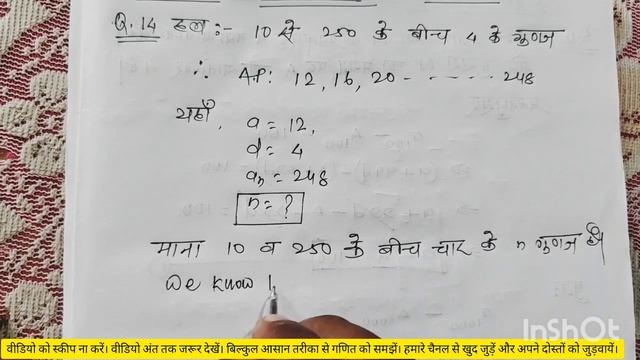 Q.14 हल :- 10 से 250 के बीच 4 के गुणज
∴ AP: 12, 16, 20 - - - - - - 248
यहाँ, a = 12,
d = 4
an = 248
n = ?
माना 10 व 250 के बीच चार के n गुणज है।
We know
InShOt
वीडियो को स्कीप ना करें। वीडियो अंत तक जरूर देखें। बिल्कुल आसान तरीका से गणित को समझें। हमारे चैनल से खुद जुड़ें और अपने दोस्तों को जुड़वायें।